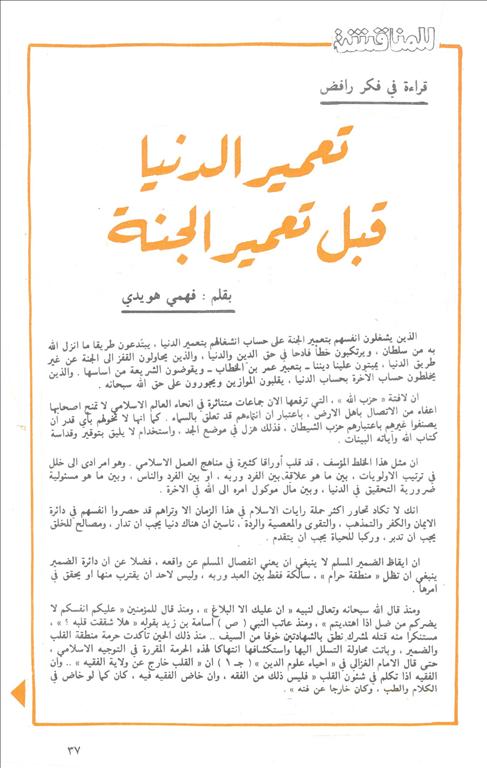 للمناقشة
قراءة في فكر رافض
تعمير الدنيا
قبل تعمير الجنة
بقلم : فهمي هويدي
الذين يشغلون انفسهم بتعمير الجنة على حساب انشغالهم بتعمير الدنيا ، يبتدعون طريقا ما انزل الله
به من سلطان ، ويرتكبون خطأ فادحا في حق الدين والدنيا ، والذين يحاولون القفز الى الجنة عن غير
طريق الدنيا ، يميتون علينا ديننا ـ بتعبير عمر بن الخطاب ـ ويقوضون الشريعة من اساسها . والذين
يخلطون حساب الآخرة بحساب الدنيا ، يقلبون الموازين ويجورون على حق الله سبحانه .
ان لافتة « حزب الله » ، التي ترفعها الان جماعات متناثرة في انحاء العالم الاسلامي لا تمنح اصحابها
اعفاء من الاتصال باهل الارض ، باعتبار ان انتماءهم قد تعلق بالسماء . كما انها لا تخولهم باي قدر ان
يصنفوا غيرهم باعتبارهم حزب الشيطان ، فذلك هزل في موضع الجد ، واستخدام لا يليق بتوقير وقداسة
كتاب الله وآياته البينات .
ان مثل هذا الخلط المؤسف ، قد قلب أوراقا كثيرة في مناهج العمل الاسلامي . وهو امر ادى الى خلل
في ترتيب الاولويات ، بين ما هو علاقة بين الفرد وربه ، او بين الفرد والناس ، وبين ما هو مسئولية
ضرورية التحقيق في الدنيا ، وبين مآل موكول امره الى الله في الاخرة .
انك لا تكاد تحاور اكثر حملة رايات الاسلام في هذا الزمان الا وتراهم قد حصروا انفسهم في دائرة
الايمان والكفر والتمذهب ، والتقوى والمعصية والردة ، ناسين ان هناك دنيا يجب ان تدار ، ومصالح للخلق
يجب ان تدبر ، وركبا للحياة يجب ان يتقدم .
ان ايقاظ الضمير المسلم لا ينبغي ان يعني انفصال المسلم عن واقعه ، فضلا عن ان دائرة الضمير
ينبغي ان تظل « منطقة حرام » ، سالكة فقط بين العبد وربه ، وليس لاحد ان يقترب منها او يحقق في
امرها .
ومنذ قال الله سبحانه وتعالى لنبيه « ان عليك الا البلاغ » ، ومنذ قال للمؤمنين « عليكم انفسكم لا
يضركم من ضل اذا اهتديتم » ، ومنذ عاتب النبي ( ص ) أسامة بن زيد بقوله « هلا شققت قلبه ؟ » ،
مستنكرا منه قتله لمشرك نطق بالشهادتين خوفا من السيف .. منذ ذلك الحين تأكدت حرمة منطقة القلب
والضمير ، وباتت محاولة التسلل اليها واستكشافها انتهاكا لهذه الحرمة المقررة في التوجيه الاسلامي ،
حتى قال الامام الغزالي في « احياء علوم الدين » ( جـ ١ ) ان « القلب خارج عن ولاية الفقيه » .. وان
الفقيه اذا تكلم في شئون القلب « فليس ذلك من الفقه ، وان خاض الفقيه فيه ، كان كما لو خاض في
الكلام والطب ، وكان خارجا عن فنه » .
٣٧